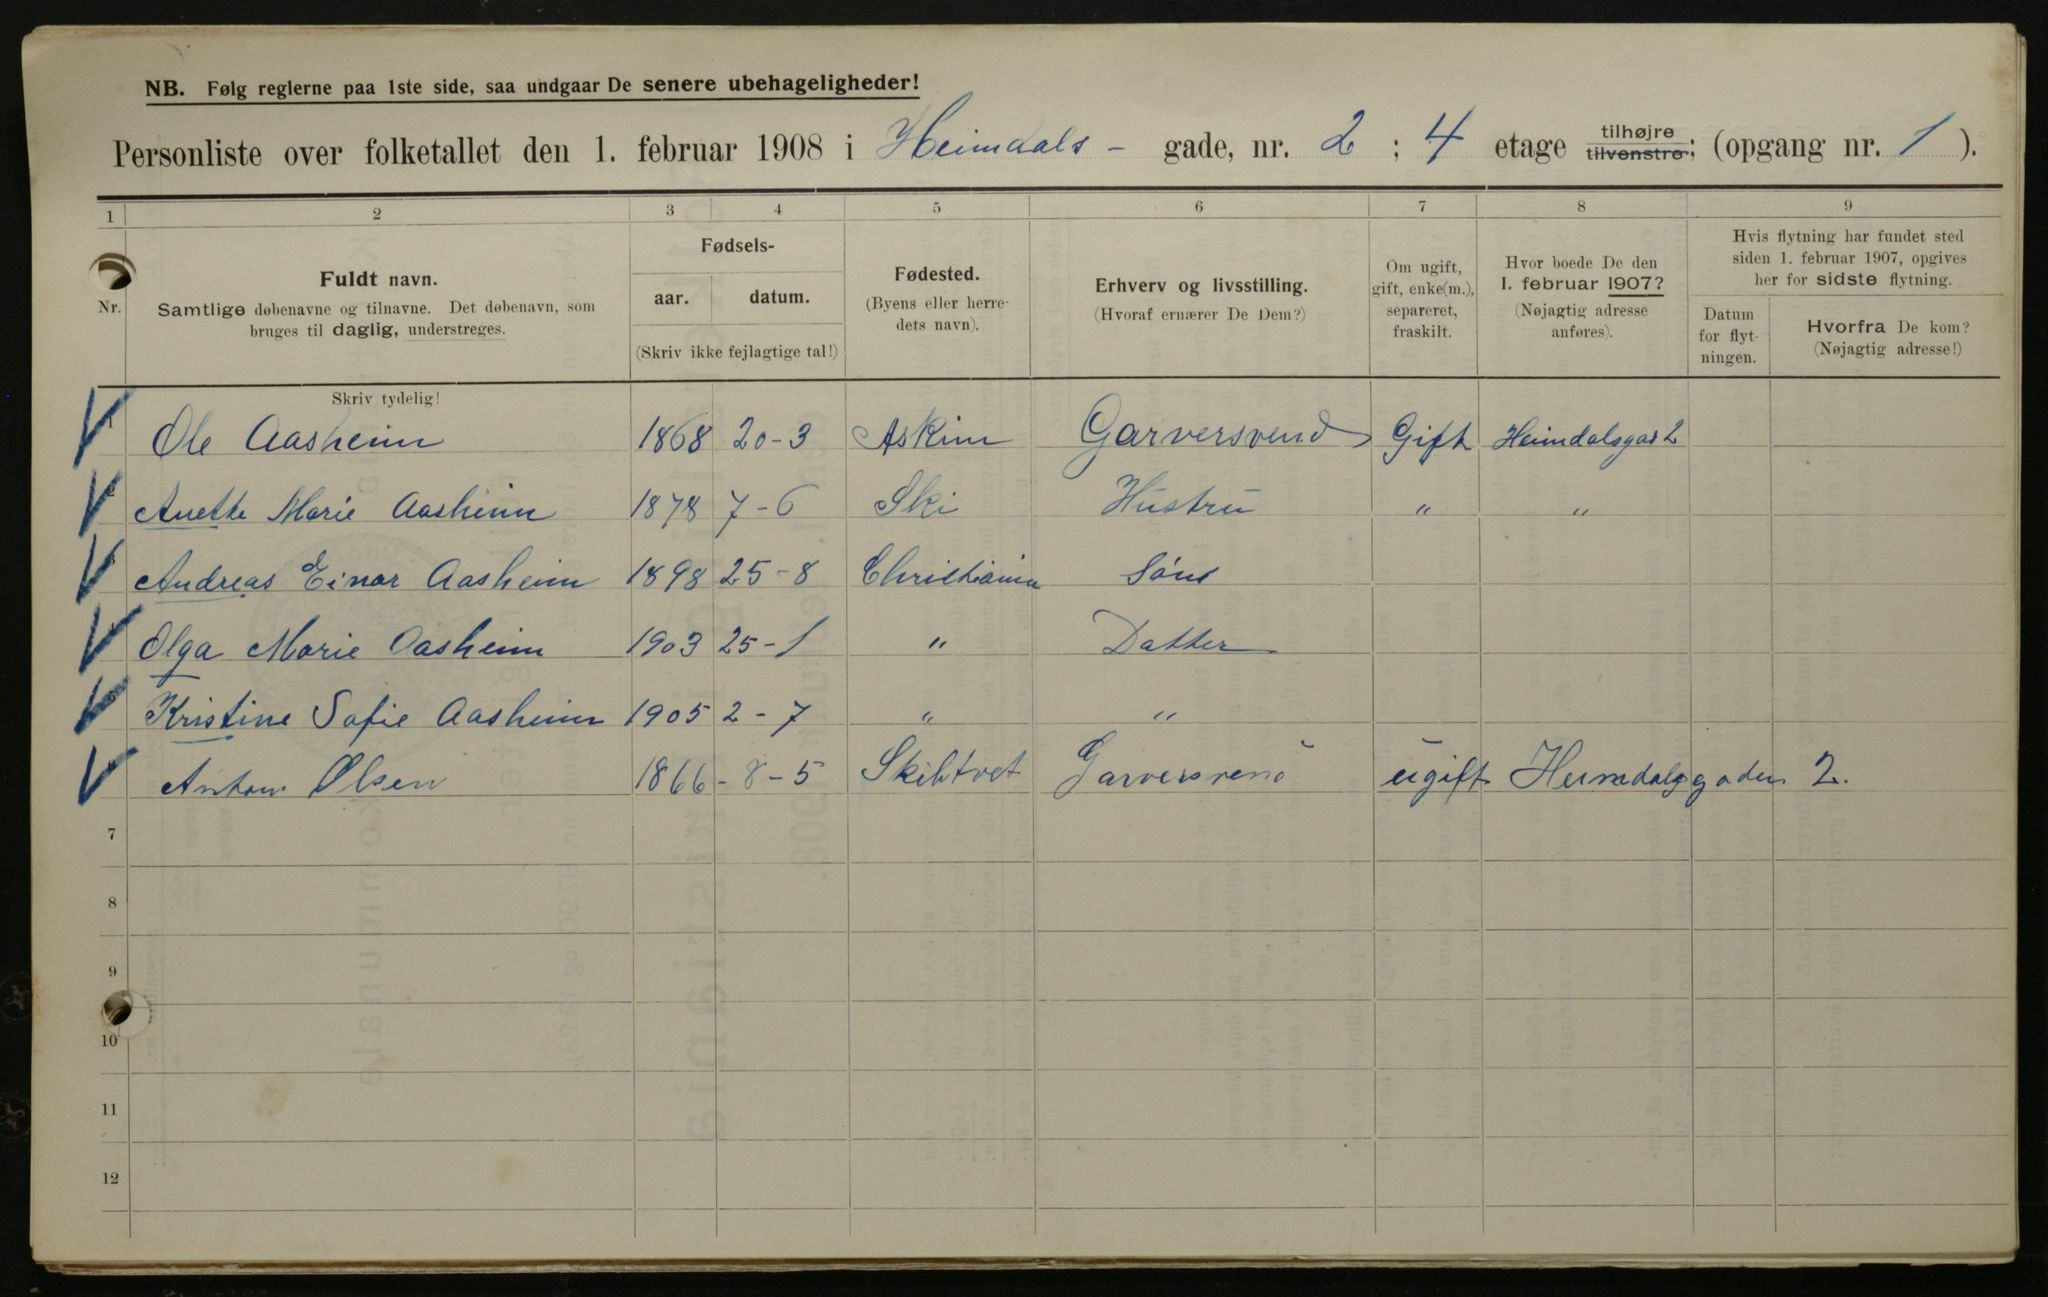 NB. Følg reglerne paa 1ste side, saa undgaar De senere ubehageligheder!
Personliste over folketallet den 1. februar 1908 i Heimdals- gade, nr. 2; 4 etage tilhøjre tilvenstre; (opgang nr. 1).
1 2 3 4 5 6 7 8 9
Nr.
Fuldt navn.
Samtlige døbenavne og tilnavne. Det døbenavn, som
bruges til daglig, understreges.
Skriv tydelig!
Fødsels-
aar. datum.
(Skriv ikke fejlagtige tal!)
Fødested.
(Byens eller herre-
dets navn).
Erhverv og livsstilling.
(Hvoraf ernærer De Dem?)
Om ugift,
gift, enke(m.),
separeret,
fraskilt.
Hvor boede De den
1. februar 1907?
(Nøjagtig adresse
anføres).
Hvis flytning har fundet sted
siden 1. februar 1907, opgives
her for sidste flytning.
Datum
for flyt-
ningen.
Hvorfra De kom?
(Nøjagtig adresse!)
1 Ole Aasheim 1868 20-3 Askim Garversvend Gift Heimdalsgad 2
2 Anette Marie Aasheim 1878 7-6 Ski Hustru " "
3 Andreas Einar Aasheim 1898 25-8 Christiania Søns
4 Olga Marie Aasheim 1903 25-1 " Datter
5 Kristine Sofie Aasheim 1905 2-7 " "
6 Anton Olsen 1866-8-5 Skibtvet Garversvend ugift Heimdalsgaden 2.
7
8
9
10
11
12